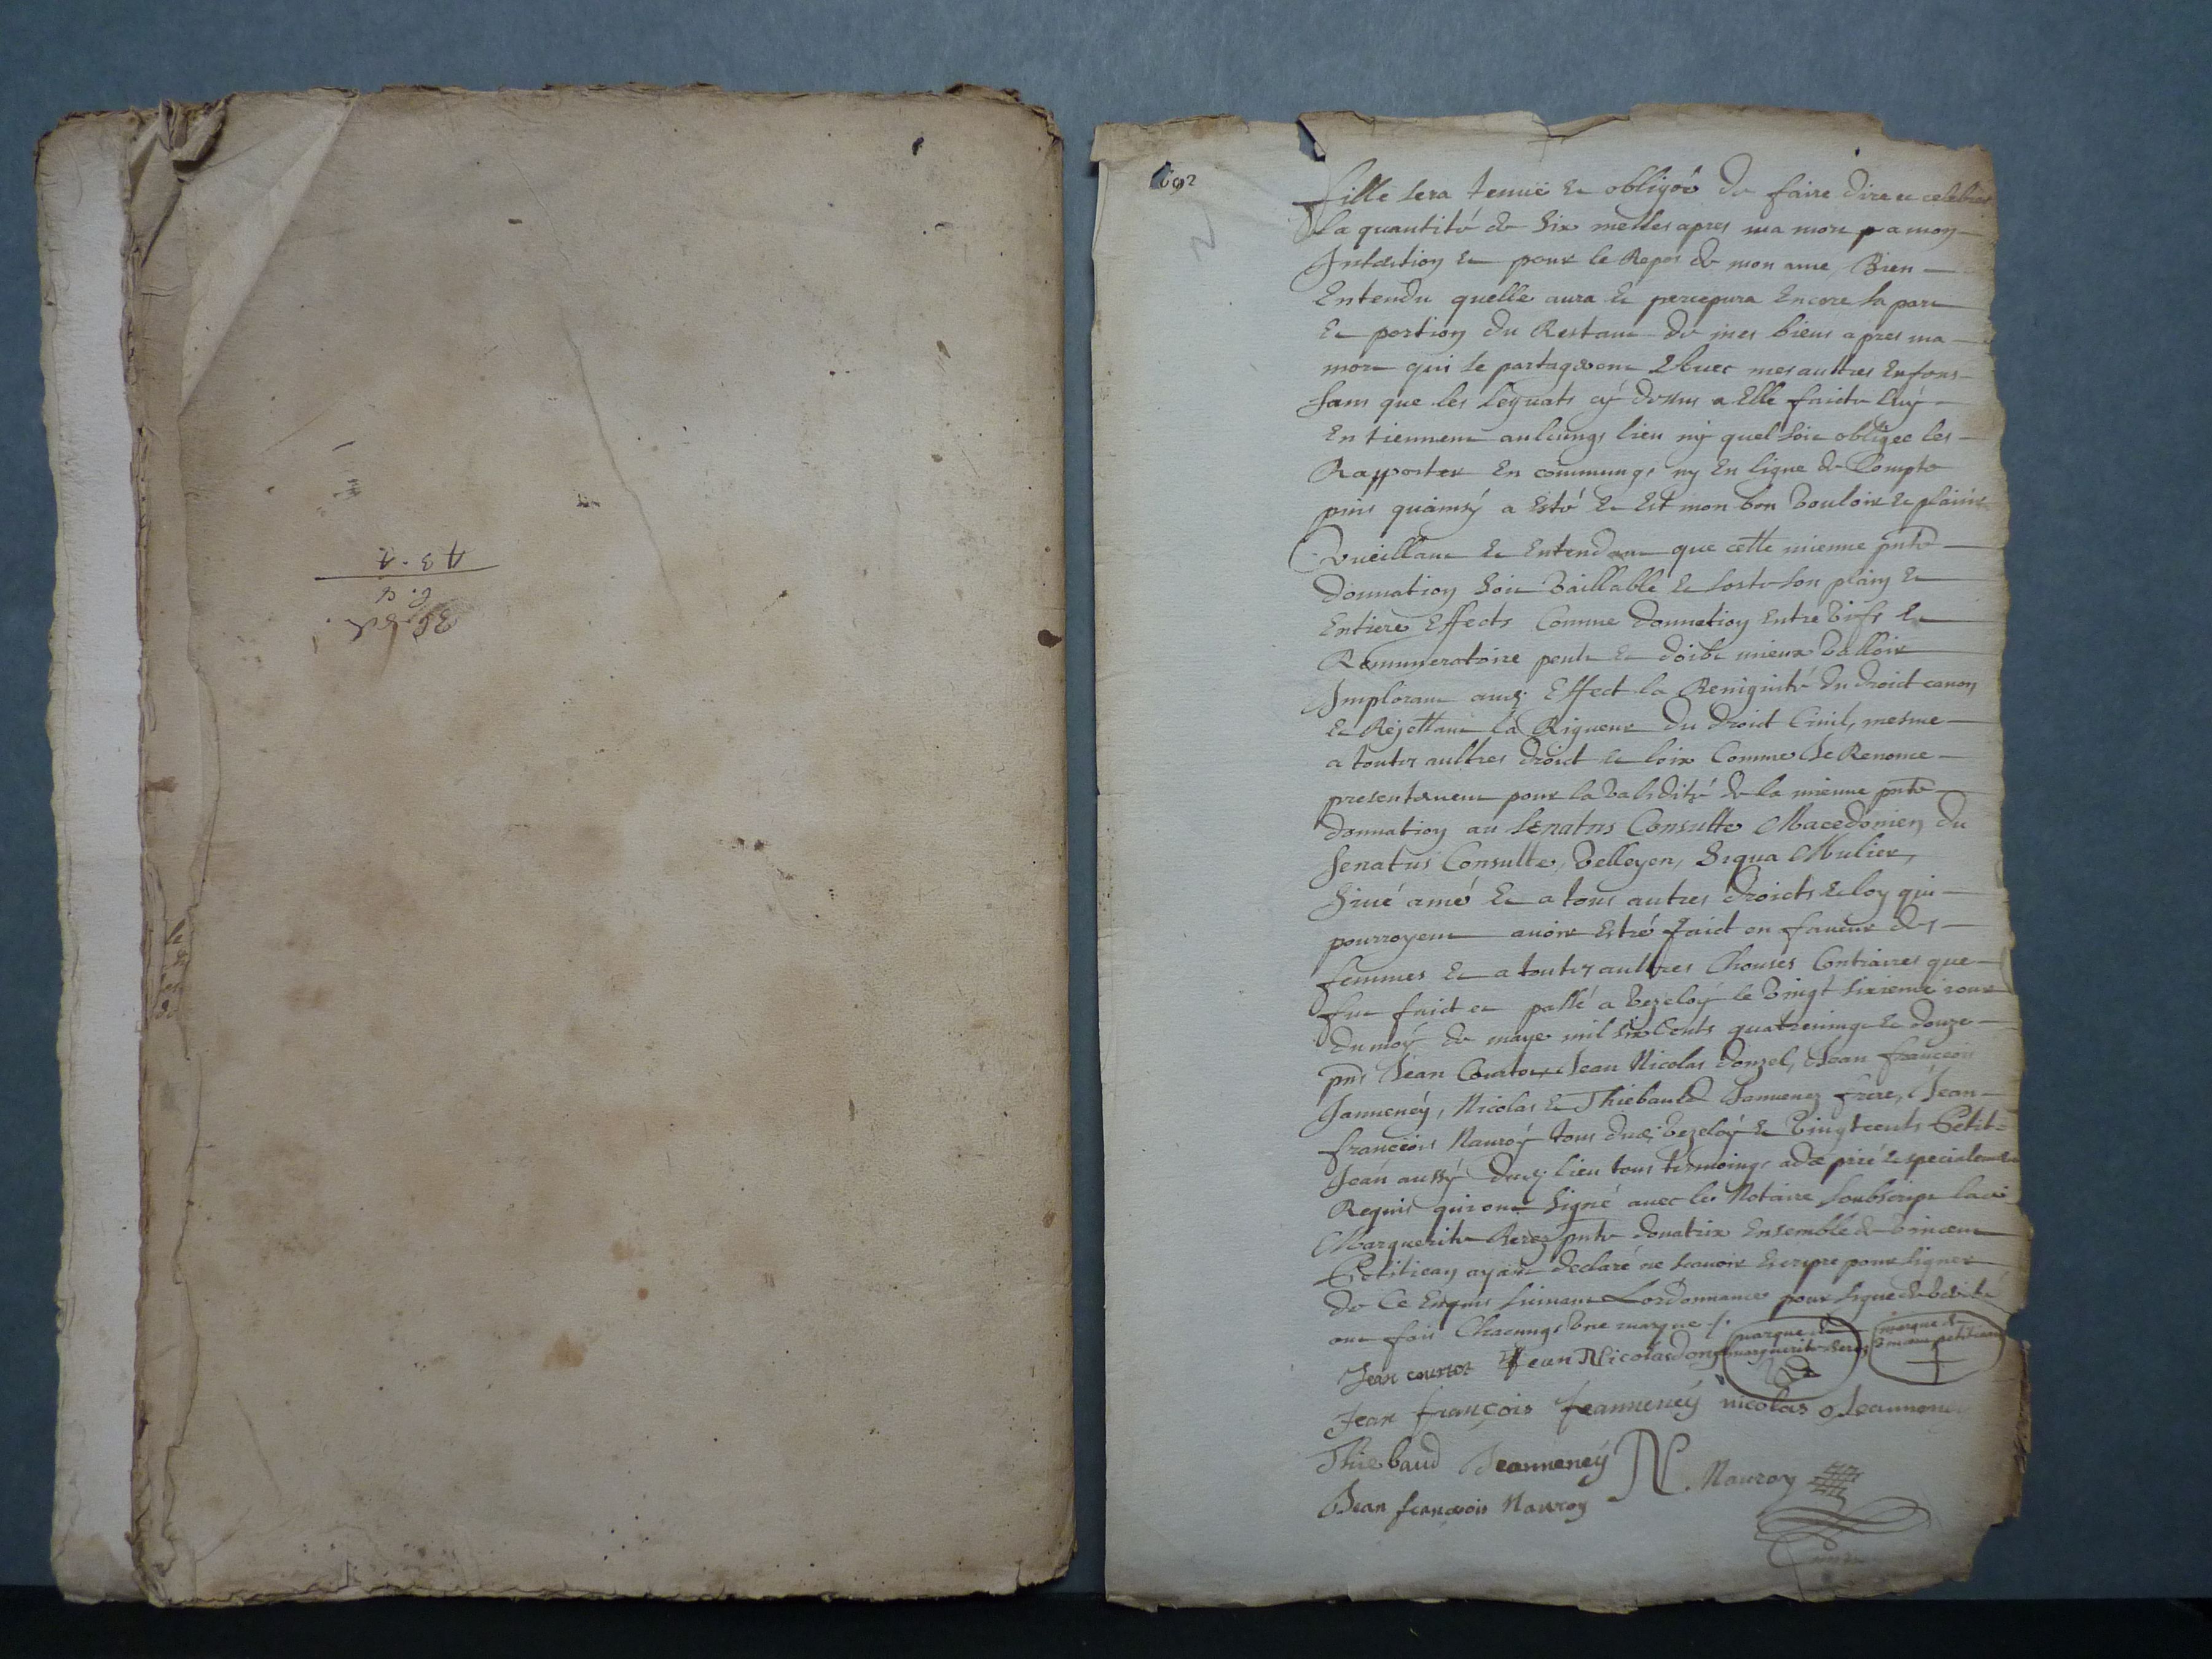 1692
fille sera tenuë et obligée de faire dire et celebrer
la quantité de six messes apres ma mort a mon
Intention et pour le Repos de mon ame, Bien
Entendu quelle aura et percepura Encore sa part
Et portion du Restant de mes biens apres ma
mort qui se partageront Avec mes aultres Enfans
sans que les leguats cÿ dessus a Elle faicts luÿ
En tiennent aulcungs lieu nÿ quel soit obligee les
Rapporter En commungs ny En ligne de Compte
puis quainsÿ a Esté Et Est mon bon vouloir et plaisir
vueillant Et Entendant que cette mienne pnte
donnation soit vaillable Et sorte son plain Et
Entiere Effects Comme donnation Entre vifs Et
Remuneratoire peult Et doibt mieux valloir
Implorant audt Effect la Benignité du droict canon
Et Rejettant la Rigueur du droict Civil, mesme
a toutes aultres droict et loix Comme Je Renonce
presentement pour la validité de la mienne pnte
donnation au Senatus Consulte Macedonien du
Senatus Consulte, Velleyen, Siqua Mulier,
Sive amé Et a tous autres droicts et loy qui
pourroyent avoir Estré faict en faveur des
femmes Et a toutes aultres Chouses Contraires que
fut faict et passé a vezeloÿ le vingt sixieme jour
du moÿ de maye mil six Cents quatrevingt et douze
pnts Jean Courtot Jean Nicolas donzel, Jean françois
Janneneÿ, Nicolas Et Thiebauld Jannenez frere, Jean
françois Nauroÿ tous dudt vezeloÿ Et Petit
Jean aussÿ dudt lieu tous tesmoings ad ce prié et specialement
Requis qui ont signé avec le Notaire soubscript
Marguerite pnte donatrix Ensemble de vincent
Petitjean ayant declaré ne scavoir Escripre pour signer
de Ce Enquis suivant Lordonnance pour signe de verité
ont fait Chacungs une marque /.
Jean courtot Jean Nicolas donzel marque de marguerite marque de vincent petitjean
Jean françois Jeanneneÿ nicolas Jeannene
Thiebaud Jeanneneÿ N. Nauroy
Jean françois Nauroy